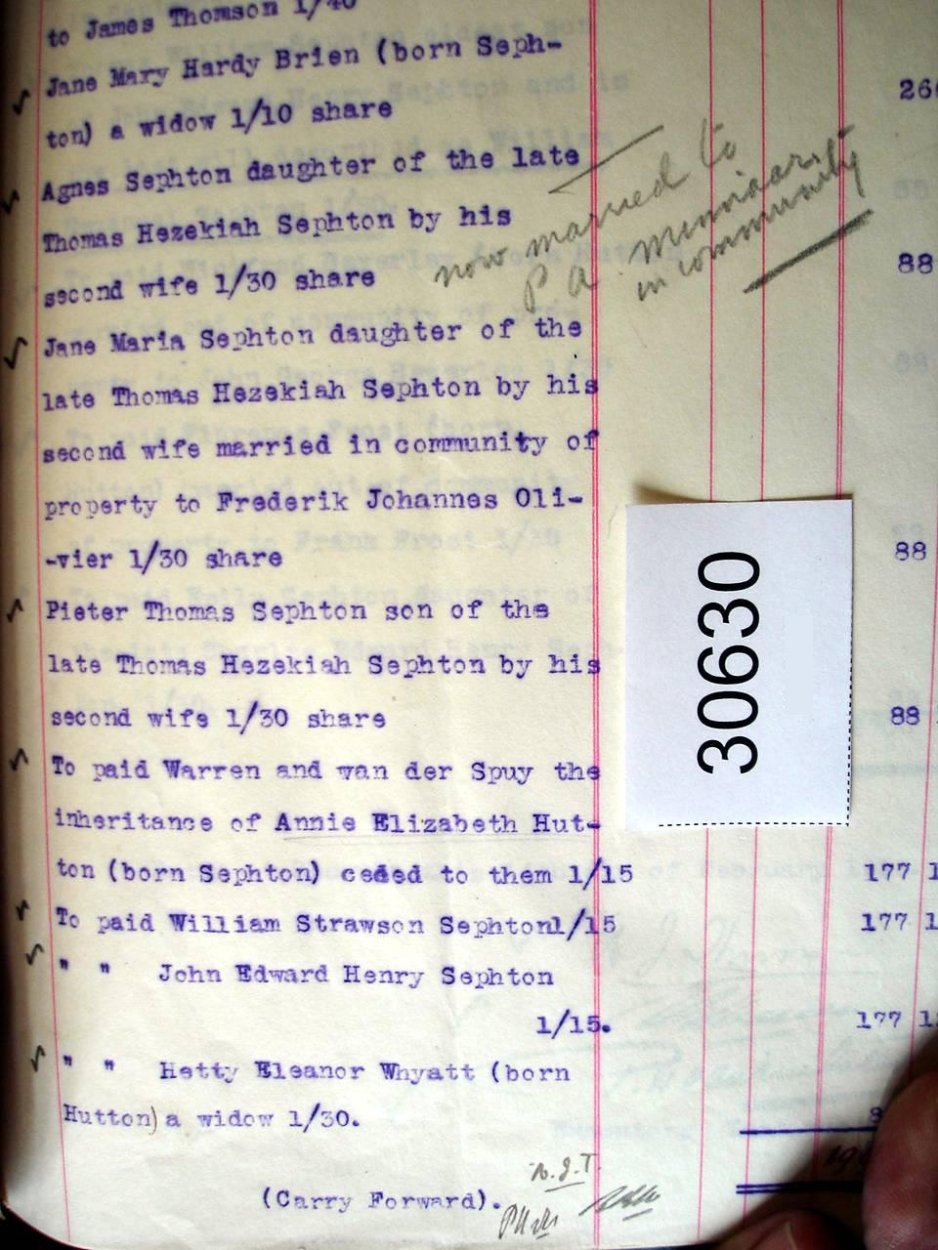 to James Thomson 1/40
Jane Mary Hardy Brien (born Seph-
ton) a widow 1/10 share 266
Agnes Sephton daughter of the late
Thomas Hezekiah Sephton by his
second wife 1/30 share 88
now married to
P A
in community
Jane Maria Sephton daughter of the
late Thomas Hezekiah Sephton by his
second wife married in community of
property to Frederik Johannes Oli-
-vier 1/30 share 88
Pieter Thomas Sephton son of the
late Thomas Hezekiah Sephton by his
second wife 1/30 share 88
To paid Warren and van der Spuy the
inheritance of Annie Elizabeth Hut-
ton (born Sephton) ceded to them 1/15 177 1
To paid William Strawson Sephton1/15 177 1
" " John Edward Henry Sephton
1/15. 177 1
" " Hetty Eleanor Whyatt (born
Hutton) a widow 1/30. 8
(Carry Forward).
30630